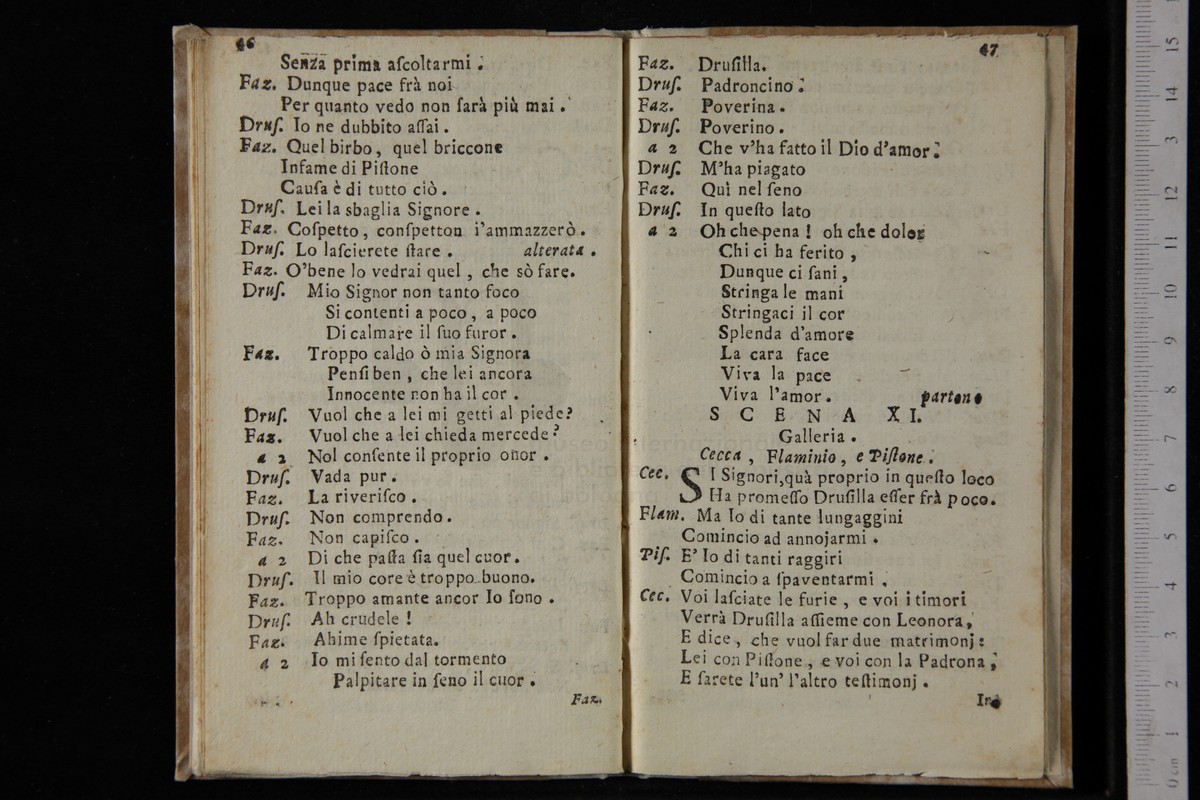 46
Senza prima aſcoltarmi.
Faz. Dunque pace frà noi
Per quanto vedo non ſarà più mai.
Druſ. Io ne dubbito aſſai.
Faz. Quel birbo, quel briccone
Infame di Piſtone
Cauſa è di tutto ciò.
Druſ. Lei la sbaglia Signore.
Faz. Coſpetto, conſpetton i'ammazzerò.
Druſ. Lo laſcierete ſtare. alterata.
Faz. O'bene lo vedrai quel, che sò fare.
Druſ. Mio Signor non tanto foco
Si contenti a poco, a poco
Di calmare il ſuo furor.
Faz. Troppo caldo ò mia Signora
Penſi ben, che lei ancora
Innocente non ha il cor.
Druſ. Vuol che a lei mi getti al piede?
Faz. Vuol che a lei chieda mercede?
a 2 Nol conſente il proprio onor.
Druſ. Vada pur.
Faz. La riveriſco.
Druſ. Non comprendo.
Faz. Non capiſco.
a 2 Di che paſta ſia quel cuor.
Druſ. Il mio core è troppo buono.
Faz. Troppo amante ancor Io ſono.
Druſ. Ah crudele!
Faz. Ahime ſpietata.
a 2 Io mi ſento dal tormento
Palpitare in ſeno il cuor.
Faz.
47
Faz. Druſilla.
Druſ. Padroncino.
Faz. Poverina.
Druſ. Poverino.
a 2 Che v'ha fatto il Dio d'amor.
Druſ. M'ha piagato
Faz. Quì nel ſeno
Druſ. In queſto lato
a 2 Oh che pena! oh che dolor
Chi ci ha ferito,
Dunque ci ſani,
Stringa le mani
Stringaci il cor
Splenda d'amore
La cara face
Viva la pace
Viva l'amor. partono
SCENA XI.
Galleria.
Cecca, Flaminio, e Piſtone.
Cec. SI Signori, quà proprio in queſto loco
Ha promeſſo Druſilla eſſer frà poco.
Flam. Ma Io di tante lungaggini
Comincio ad annojarmi.
Piſ. E' Io di tanti raggiri
Comincio a ſpaventarmi.
Cec. Voi laſciate le furie, e voi i timori
Verrà Druſilla aſſieme con Leonora,
E dice, che vuol far due matrimonj:
Lei con Piſtone, e voi con la Padrona;
E ſarete l'un' l'altro teſtimonj.